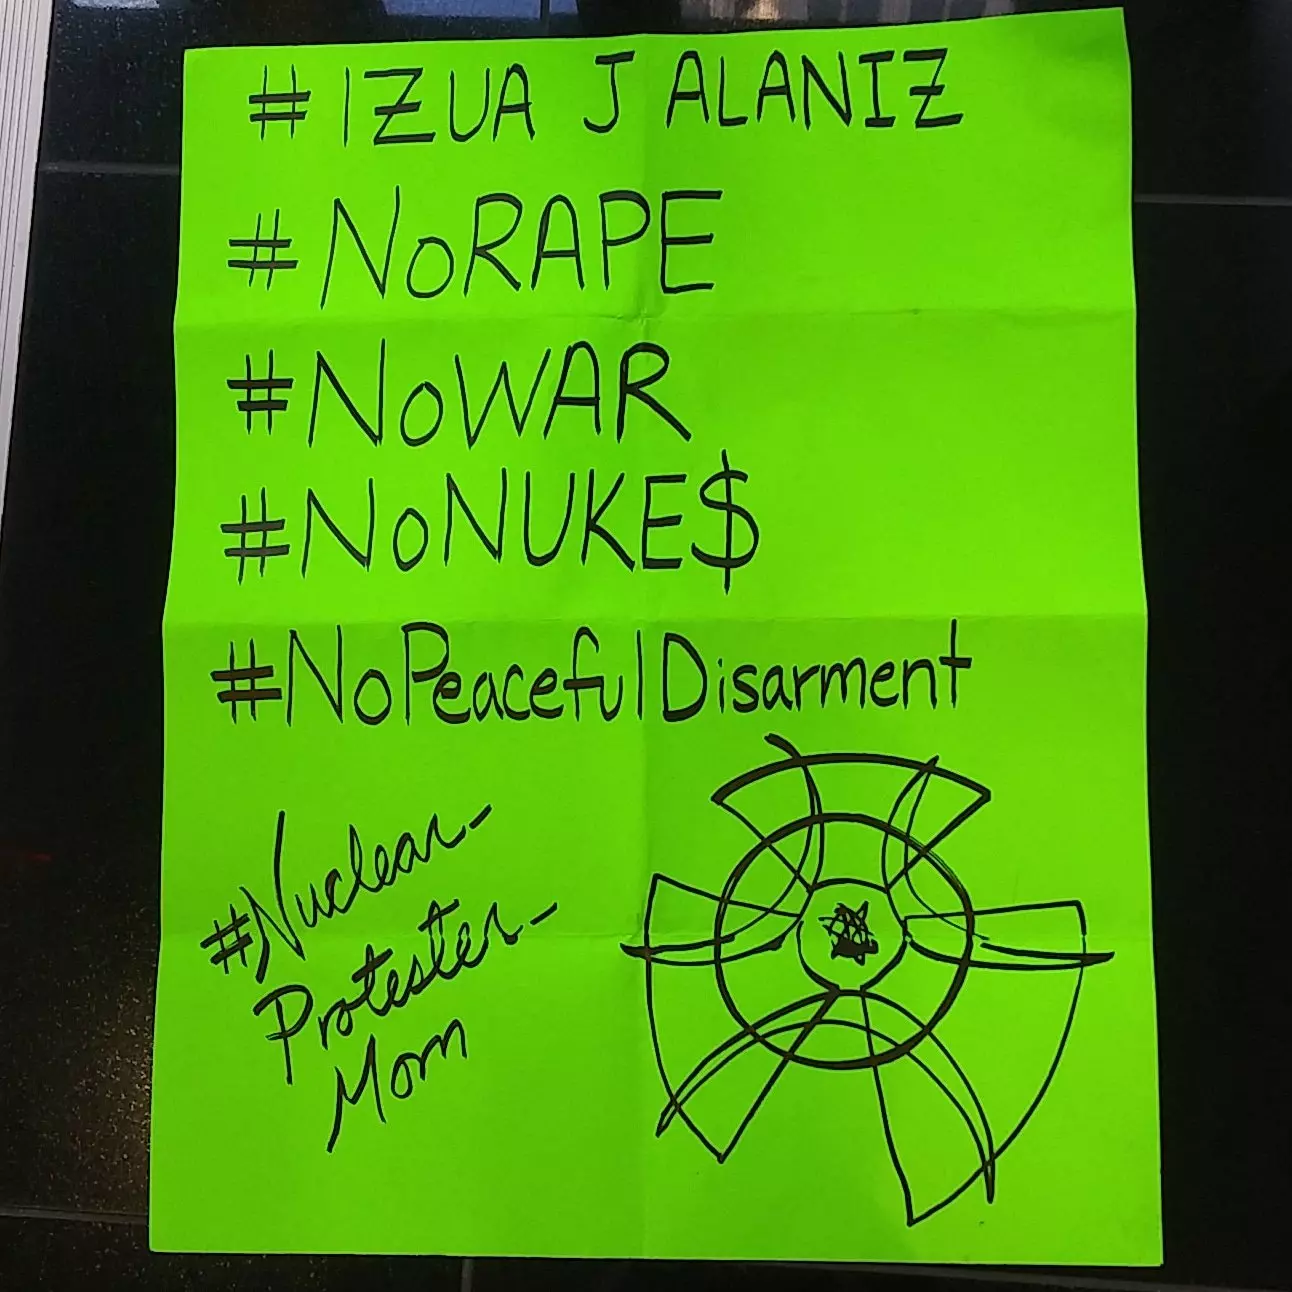 #IZUA J ALANIZ
#NoRAPE
#NoWAR
#NoNUKE$
#NoPeacefulDisarment
#Nuclear-
Protester-
Mom